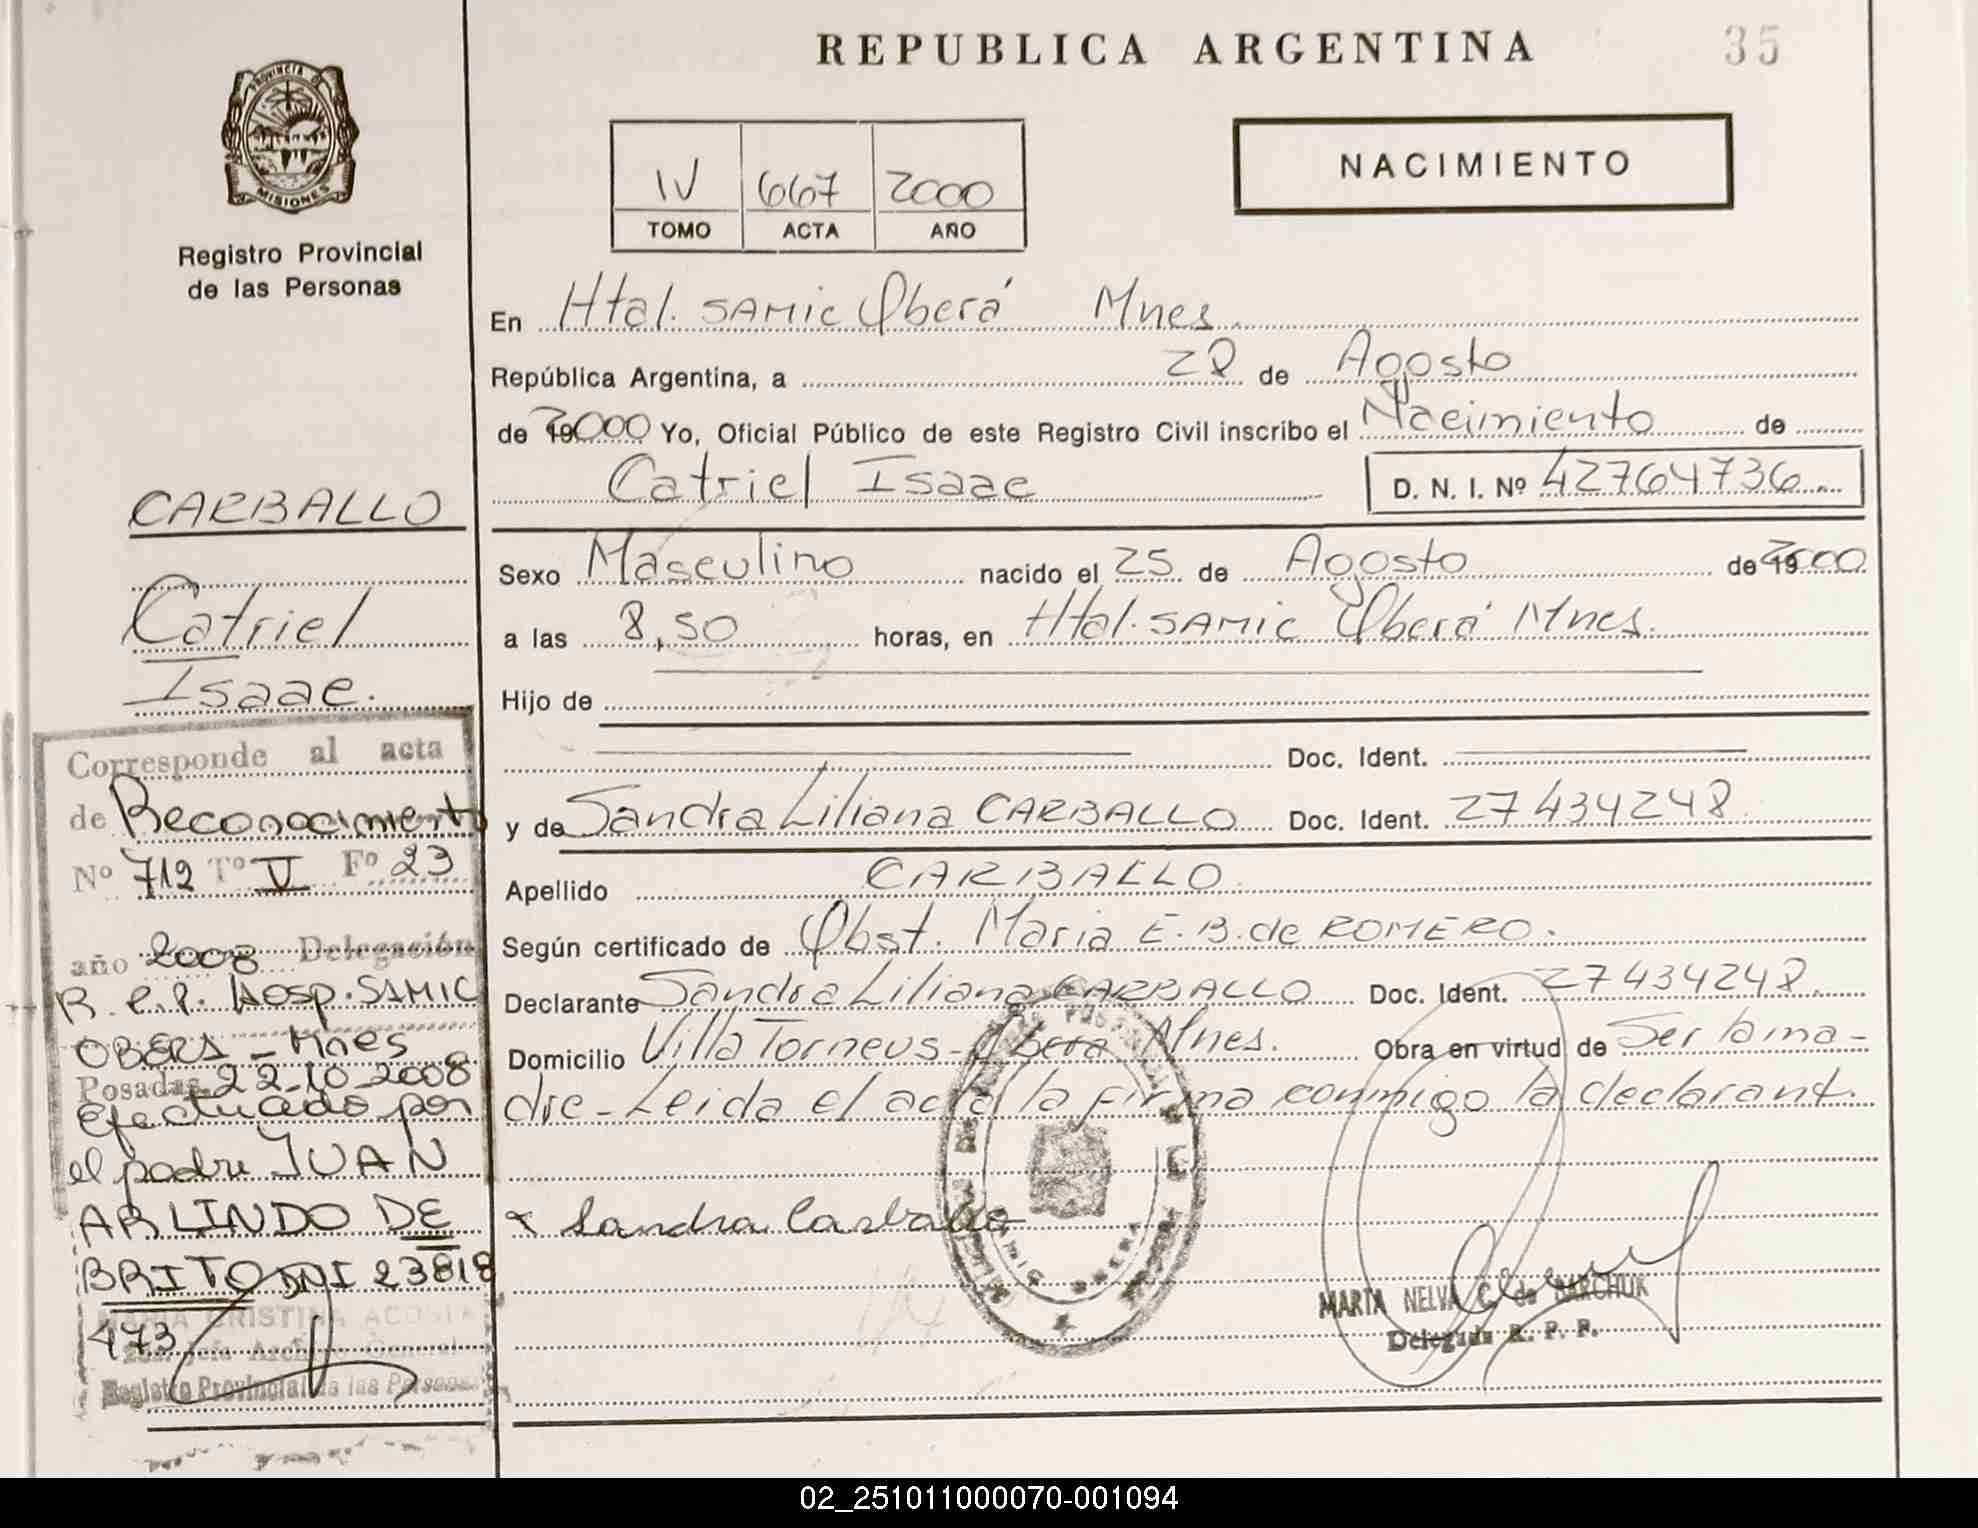 REPUBLICA ARGENTINA
35
PROVINCIA DE
MISIONES
Registro Provincial
de las Personas
IV 667 2000
TOMO ACTA AÑO
NACIMIENTO
En Htal. SAMIC Oberá Mnes.
República Argentina, a 28 de Agosto
de 2000 Yo, Oficial Público de este Registro Civil inscribo el Nacimiento de
Catriel Isaac D. N. I. Nº 42764736
Sexo Masculino nacido el 25 de Agosto de 2000
a las 8,50 horas, en Htal. SAMIC Oberá Mnes.
Hijo de
Doc. Ident.
y de Sandra Liliana CARBALLO Doc. Ident. 27434248
Apellido CARBALLO
Según certificado de Obst. Maria E. B. de ROMERO.
Declarante Sandra Liliana CARBALLO Doc. Ident. 27434248
Domicilio Villa Torneus - Oberá Mnes. Obra en virtud de Ser la ma-
dre - Leida el acta la firma conmigo la declarant.
Sandra Carballo
MARTA NELVA C. de BARCHUK
Delegada R. P. P.
CARBALLO
Catriel
Isaac.
Corresponde al acta
de Reconocimiento
Nº 712 Tº V Fº 23
año 2008 Delegación
R. P. P. Hosp. SAMIC
OBERA - Mnes
Posadas, 22-10-2008
Efectuado por
el padre JUAN
ARLINDO DE
BRITO DNI 23818
473
MARIA CRISTINA ACOSTA
2da. Jefa Archivo General
Registro Provincial de las Personas
02_251011000070-001094